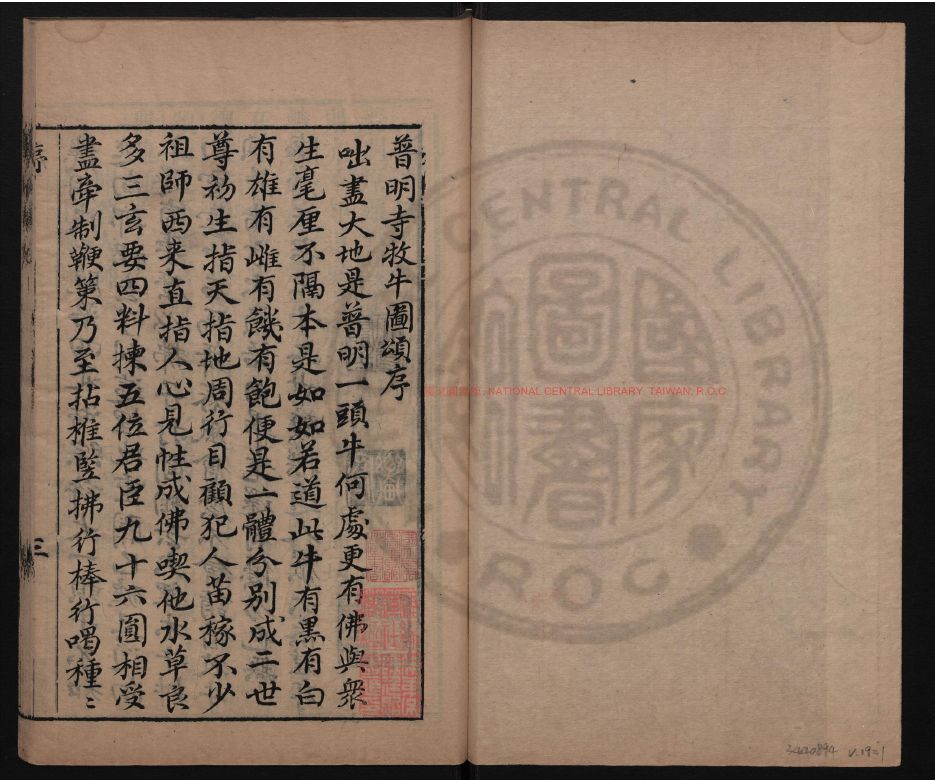 普明寺牧牛圖頌序
咄盡大地是普明一頭牛何處更有佛與衆
生毫厘不隔本是如如若道此牛有黒有白
有雄有雌有饑有飽便是一體分別成二世
尊初生指天指地周行目顧犯人苗稼不少
祖師西来直指人心見性成佛喫他水草良
多三玄要四料揀五位君臣九十六圓相受
盡牽制鞭策乃至拈椎竪拂行棒行喝種〻
序
三
NATIONAL CENTRAL LIBRARY, TAIWAN, R.O.C
CENTRAL LIBRARY
R O C
國家圖書館
3440894 v.19=1